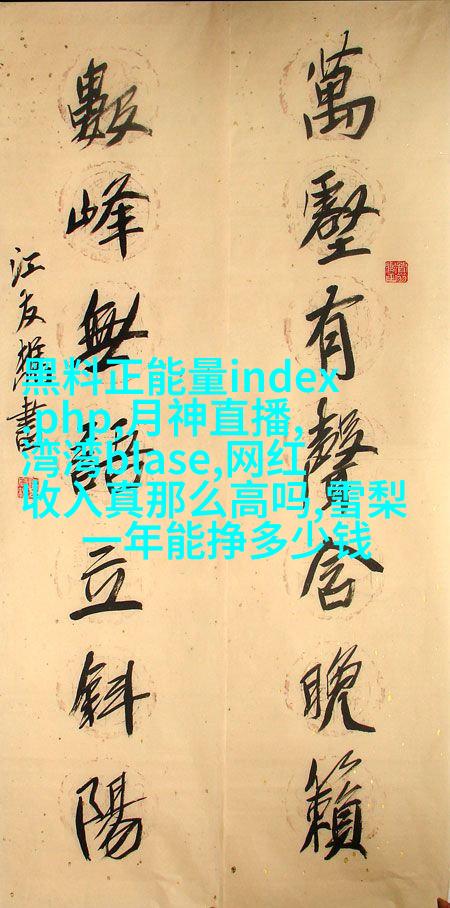 萬壑有聲含晚籟
數峰無語立斜陽
江友樵書
黑料正能量index
.php,月神直播,
湾湾blase,网红
收入真那么高吗,雪梨
一年能挣多少钱